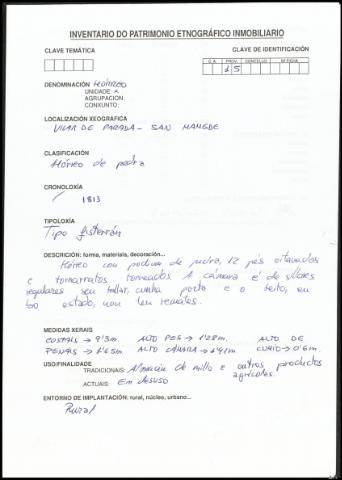 INVENTARIO DE PATRIMONIO ETNOGRÁFICO INMOBILIARIO
CLAVE TEMÁTICA
CLAVE DE IDENTIFICACIÓN
C.A. PROV. CONCELLO Nº FICHA
15
DENOMINACIÓN: HÓRREO
UNIDADE: x
AGRUPACION:
CONXUNTO:
LOCALIZACIÓN XEOGRÁFICA
VILAR DE PARADA - SAN MAMEDE
CLASIFICACIÓN
Hórreo de pedra
CRONOLOXÍA
1813
TIPOLOXÍA
Tipo fisterrán
DESCRICIÓN: forma, materiais, decoración...
Hórreo con de pedra, 12 pés oitavados
e tornarratos torneados. A cámara é de sillares
regulares sen tallar, cunha porta e o teito, en
bo estado, non ten remates.
MEDIDAS XERAIS
COSTAIS → 9'3m. ALTO PES → 1'28m. ALTO DE
PENAIS → 1'65m. ALTO CÁMARA → 1'91m. CUMIO → 0'6m.
USO/FINALIDADE
TRADICIONAIS: Almacén de millo e outros productos
agrícolas.
ACTUAIS: En desuso
ENTORNO DE IMPLANTACIÓN: rural, núcleo, urbano...
Rural